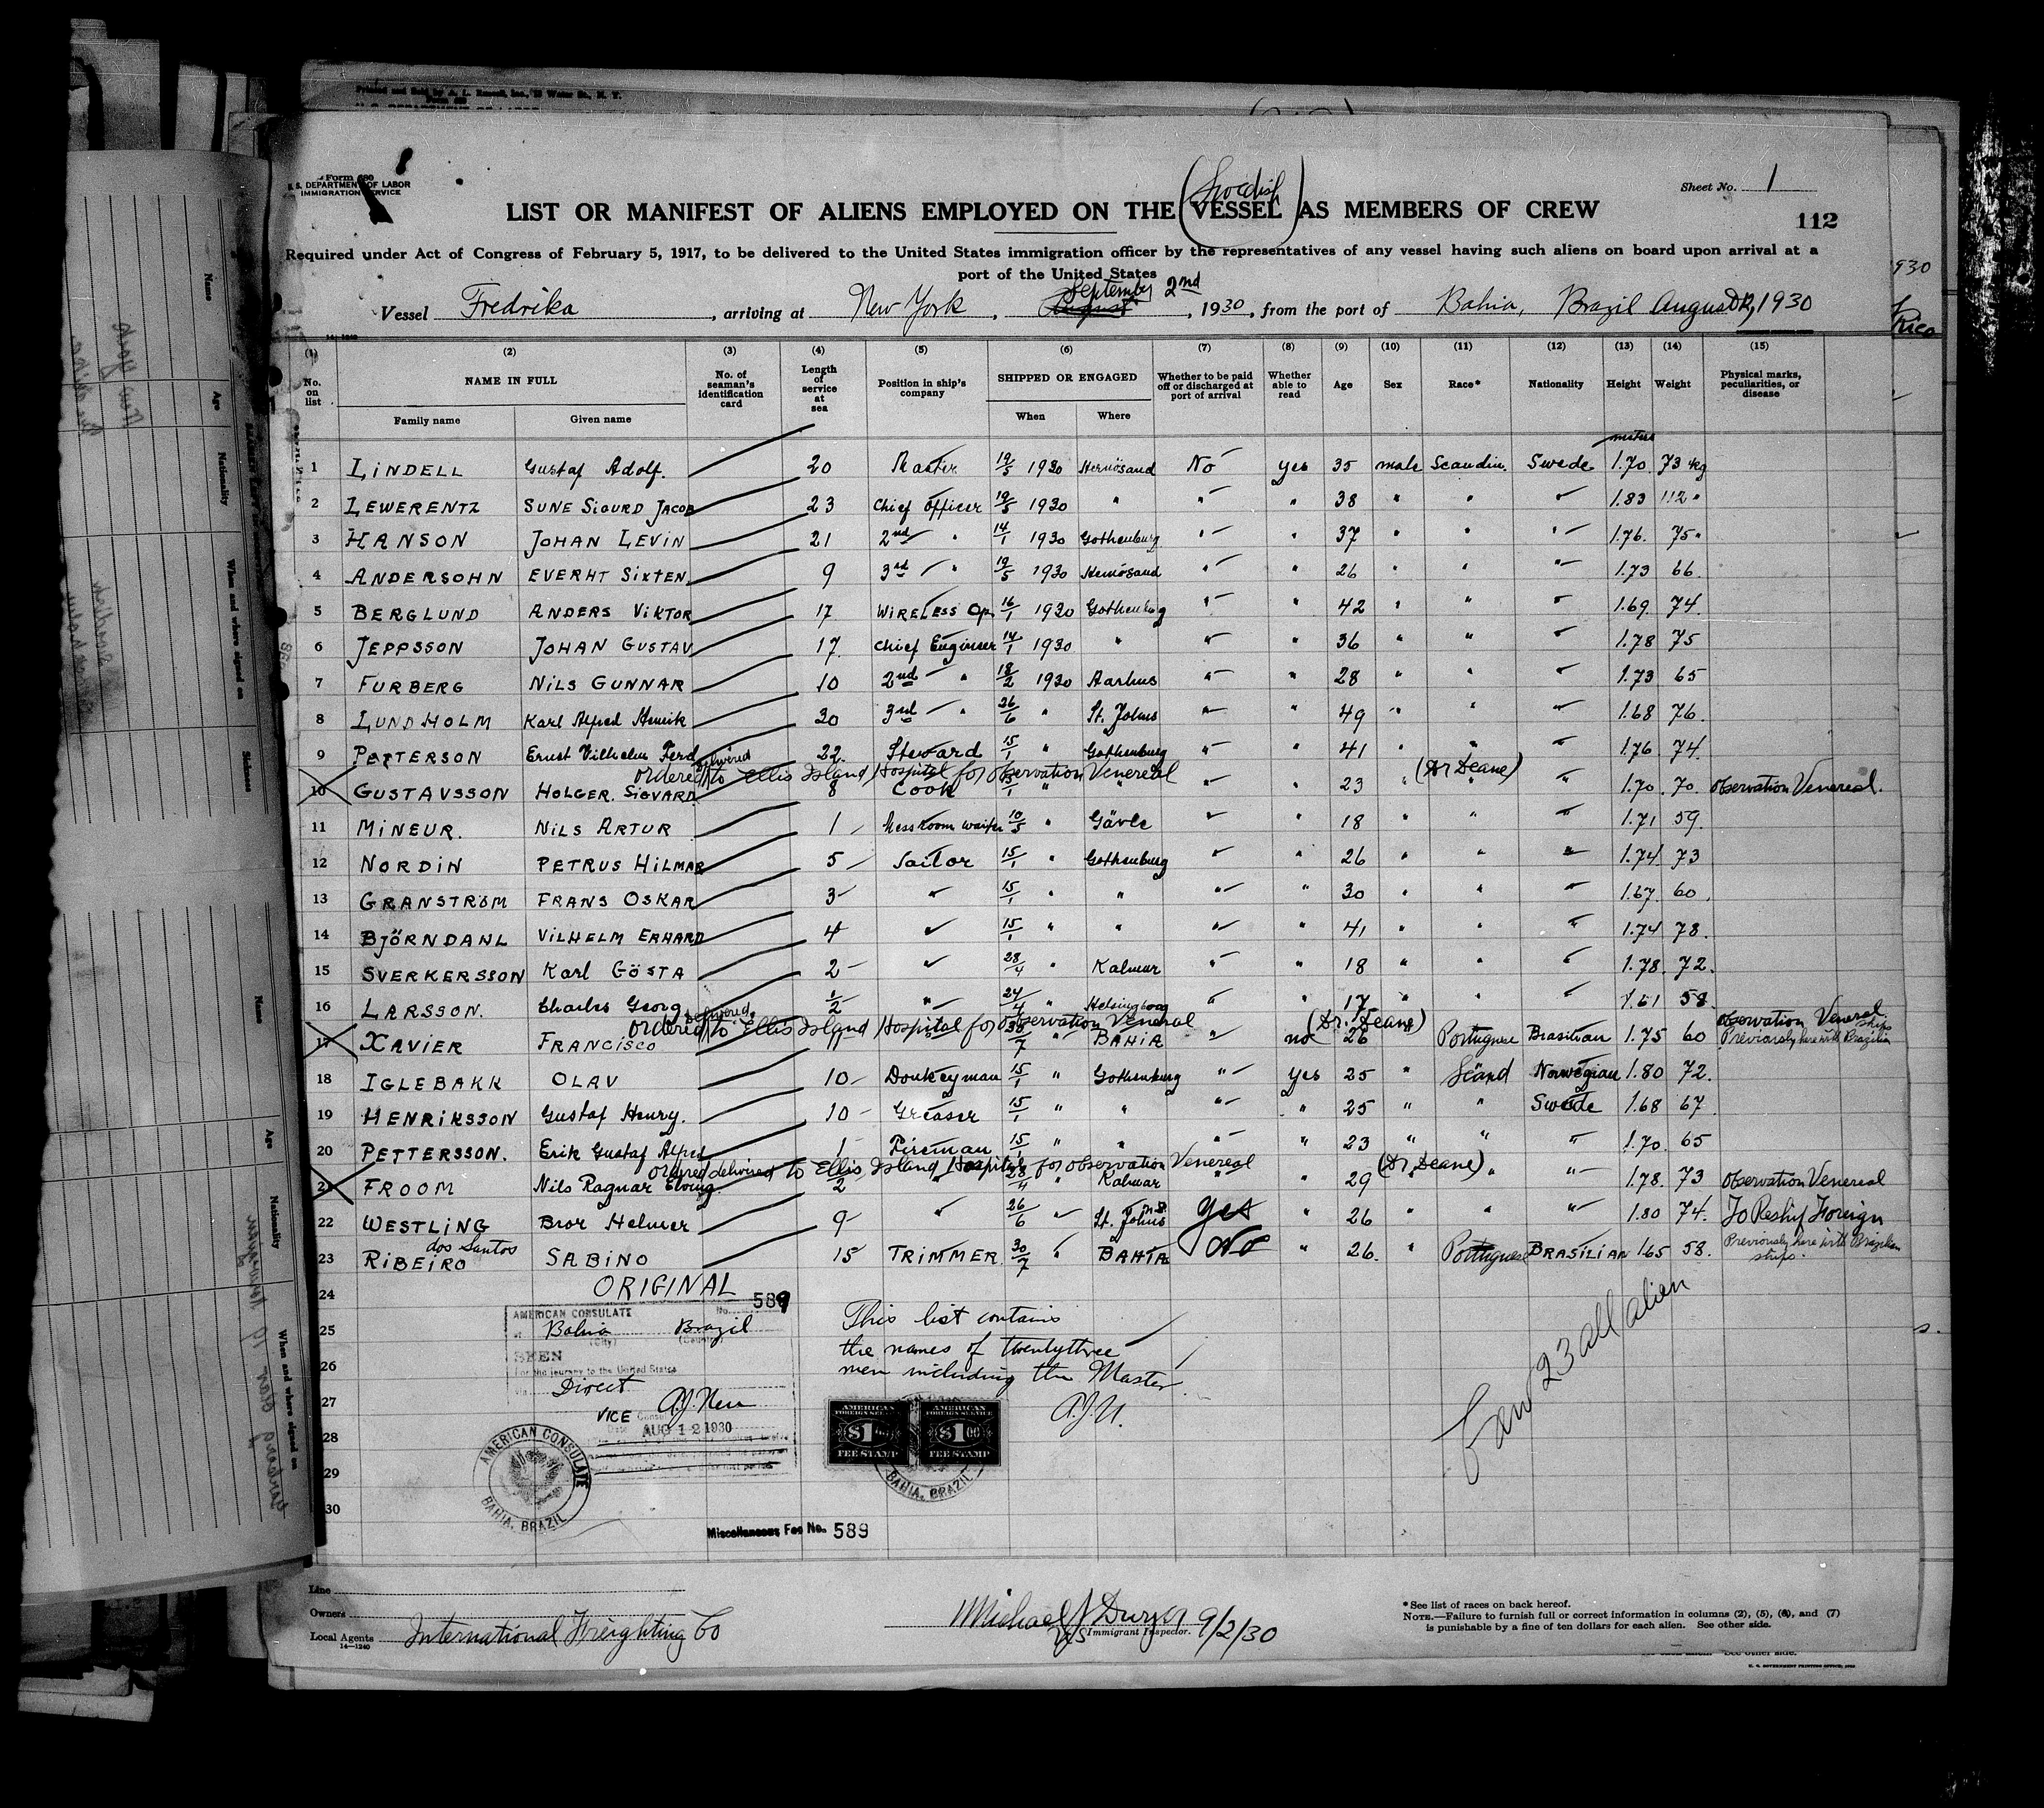 Printed and Sold by A. L. Russell, Inc., Water St., N. Y.
Form 680
U. S. DEPARTMENT OF LABOR
IMMIGRATION SERVICE
Sheet No. 1
112
(Swedish)
LIST OR MANIFEST OF ALIENS EMPLOYED ON THE VESSEL AS MEMBERS OF CREW
Required under Act of Congress of February 5, 1917, to be delivered to the United States immigration officer by the representatives of any vessel having such aliens on board upon arrival at a
port of the United States
September 2nd
Vessel Fredrika, arriving at New York, August, 1930, from the port of Bahia, Brazil August 12, 1930
14-1240
(1) (2) (3) (4) (5) (6) (7) (8) (9) (10) (11) (12) (13) (14) (15)
No. on list NAME IN FULL Family name Given name No. of seaman's identification card Length of service at sea Position in ship's company SHIPPED OR ENGAGED When Where Whether to be paid off or discharged at port of arrival Whether able to read Age Sex Race* Nationality Height Weight Physical marks, peculiarities, or disease
meters
1 LINDELL Gustaf Adolf. 20 Master 19/5 1930 Hernösand No yes 35 male Scandin. Swede 1.70 73 kg
2 LEWERENTZ SUNE SIGURD JACOB 23 Chief Officer 19/5 1930 " " " 38 " " " 1.83 112 "
3 HANSON JOHAN LEVIN 21 2nd " 14/1 1930 Gothenburg " " 37 " " " 1.76. 75 "
4 ANDERSOHN EVERHT SIXTEN 9 3rd " 19/5 1930 Hernösand " " 26 " " " 1.73 66.
5 BERGLUND ANDERS VIKTOR 17 WIRELESS Op. 16/1 1930 Gothenburg " " 42 " " " 1.69. 74.
6 JEPPSSON JOHAN GUSTAV 17. Chief Engineer 14/1 1930 " " " 36 " " " 1.78 75
7 FURBERG NILS GUNNAR 10 2nd " 18/2 1930 Aarhus " " 28 " " " 1.73 65
8 LUNDHOLM Karl Alfred Henrik 30 3rd " 26/6 " St. Johns " " 49 " " " 1.68 76.
9 PETTERSON Ernst Vilhelm Ferd 22. Steward 15/1 " Gothenburg " " 41 " " " 1.76 74.
ordered delivered to Ellis Island Hospital for observation Venereal (Dr Deane)
10 GUSTAVSSON HOLGER. SIGVARD 8 Cook 15/1 " " " " 23 " " " 1.70. 70. observation Venereal.
11 MINEUR. NILS ARTUR 1 Messroom waiter 10/5 " Gävle " " 18 " " " 1.71 59.
12 NORDIN PETRUS HILMAR 5 Sailor 15/1 " Gothenburg " " 26 " " " 1.74 73
13 GRANSTRÖM FRANS OSKAR 3 " 15/1 " " " " 30 " " " 1.67. 60.
14 BJÖRNDAHL VILHELM ERHARD 4 " 15/1 " " " " 41 " " " 1.74 78.
15 SVERKERSSON Karl GÖSTA 2 " 28/4 " Kalmar " " 18 " " " 1.78. 72.
16 LARSSON. Charles Georg 1/2 " 24/4 " Helsingborg " " 17 " " " 1.61 58.
ordered delivered to Ellis Island Hospital for observation Veneral (Dr. Deane) observation Veneral.
17 XAVIER FRANCISCO 11 30/7 " BAHIA " no 26 " Portuguese Brasilian 1.75 60 Previously here with Brazilian ships
18 IGLEBAKK OLAV 10 Donkeyman 15/1 " Gothenburg " yes 25 " Scand Norwegian 1.80 72.
19 HENRIKSSON Gustaf Henry. 10 Greaser 15/1 " " " " 25 " " Swede 1.68 67
20 PETTERSSON. Erik Gustaf Alfred 1 Fireman 15/1 " " " " 23 " " " 1.70. 65
ordered delivered to Ellis Island Hospital for observation Venereal (Dr Deane)
21 FROOM Nils Ragnar Elving. 1/2 " 28/4 " Kalmar " " 29 " " " 1.78. 73 observation Venereal
22 WESTLING Bror Helmer 9 " 26/6 " St. Johns yes " 26 " " " 1.80 74. To Reship Foreign
23 RIBEIRO dos Santos SABINO 15 TRIMMER 30/7 " BAHIA No " 26. " Portuguese BRASILIAN 1.65 58. Previously here with Brazilian ships.
24 ORIGINAL
25
26
27
28
29
30
AMERICAN CONSULATE No. 589
at Bahia Brazil
(City) (Country)
SEEN
For the journey to the United States
via Direct
VICE Consul
Date AUG 12 1930
AMERICAN CONSULATE
BAHIA, BRAZIL
This list contains
the names of twentythree
men including the Master.
A.J.N.
AMERICAN FOREIGN SERVICE $1.00 FEE STAMP
AMERICAN FOREIGN SERVICE $1.00 FEE STAMP
BAHIA, BRAZIL
Miscellaneous Fee No. 589
Crew 23 all alien
Line
Owners
Local Agents International Freighting Co
14-1240
Michael J Dwyer 9/2/30
US Immigrant Inspector.
*See list of races on back hereof.
NOTE.—Failure to furnish full or correct information in columns (2), (5), (6), and (7)
is punishable by a fine of ten dollars for each alien. See other side.
U. S. GOVERNMENT PRINTING OFFICE